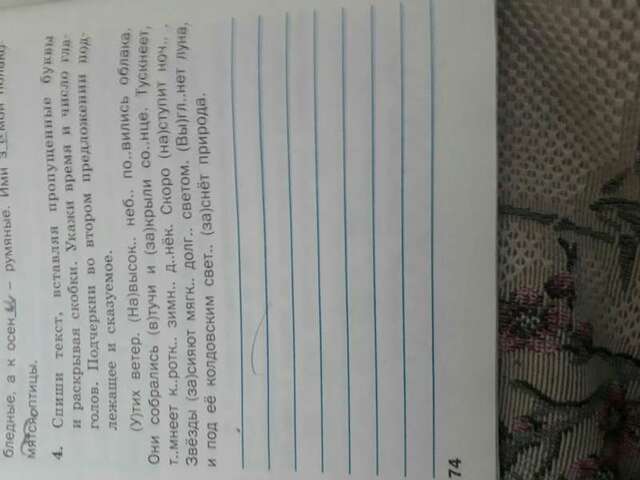 бледные, а к осени – румяные. Ими
мятся птицы.
4. Спиши текст, вставляя пропущенные буквы
и раскрывая скобки. Укажи время и число гла-
голов. Подчеркни во втором предложении под-
лежащее и сказуемое.
(У)тих ветер. (На)высок.. неб.. по..вились облака.
Они собрались (в)тучи и (за)крыли со..нце. Тускнеет,
т..мнеет к..ротк.. зимн.. д..нёк. Скоро (на)ступит ноч.. ,
Звёзды (за)сияют мягк.. долг.. светом. (Вы)гл..нет луна,
и под её колдовским свет.. (за)снёт природа.
74